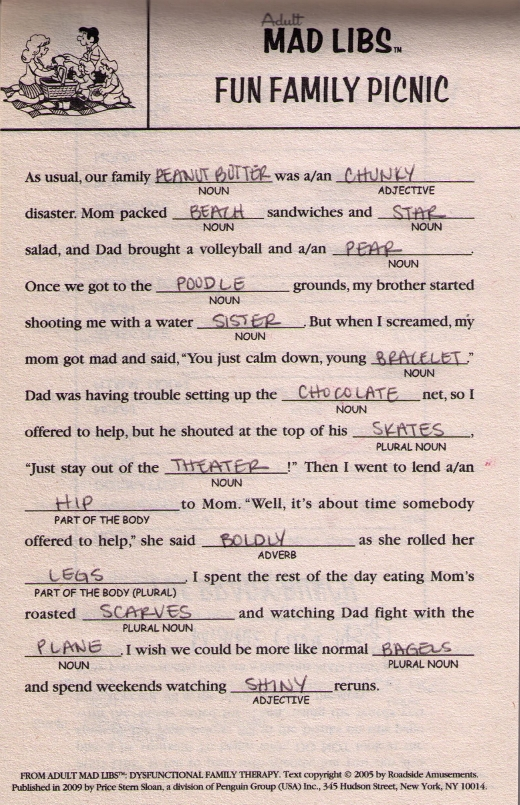 Adult
MAD LIBS™
FUN FAMILY PICNIC
As usual, our family PEANUT BUTTER was a/an CHUNKY
NOUN ADJECTIVE
disaster. Mom packed BEACH sandwiches and STAR
NOUN NOUN
salad, and Dad brought a volleyball and a/an PEAR.
NOUN
Once we got to the POODLE grounds, my brother started
NOUN
shooting me with a water SISTER. But when I screamed, my
NOUN
mom got mad and said, "You just calm down, young BRACELET."
NOUN
Dad was having trouble setting up the CHOCOLATE net, so I
NOUN
offered to help, but he shouted at the top of his SKATES,
PLURAL NOUN
"Just stay out of the THEATER!" Then I went to lend a/an
NOUN
HIP to Mom. "Well, it's about time somebody
PART OF THE BODY
offered to help," she said BOLDLY as she rolled her
ADVERB
LEGS. I spent the rest of the day eating Mom's
PART OF THE BODY (PLURAL)
roasted SCARVES and watching Dad fight with the
PLURAL NOUN
PLANE. I wish we could be more like normal BAGELS
NOUN PLURAL NOUN
and spend weekends watching SHINY reruns.
ADJECTIVE
FROM ADULT MAD LIBS™: DYSFUNCTIONAL FAMILY THERAPY. Text copyright © 2005 by Roadside Amusements.
Published in 2009 by Price Stern Sloan, a division of Penguin Group (USA) Inc., 345 Hudson Street, New York, NY 10014.